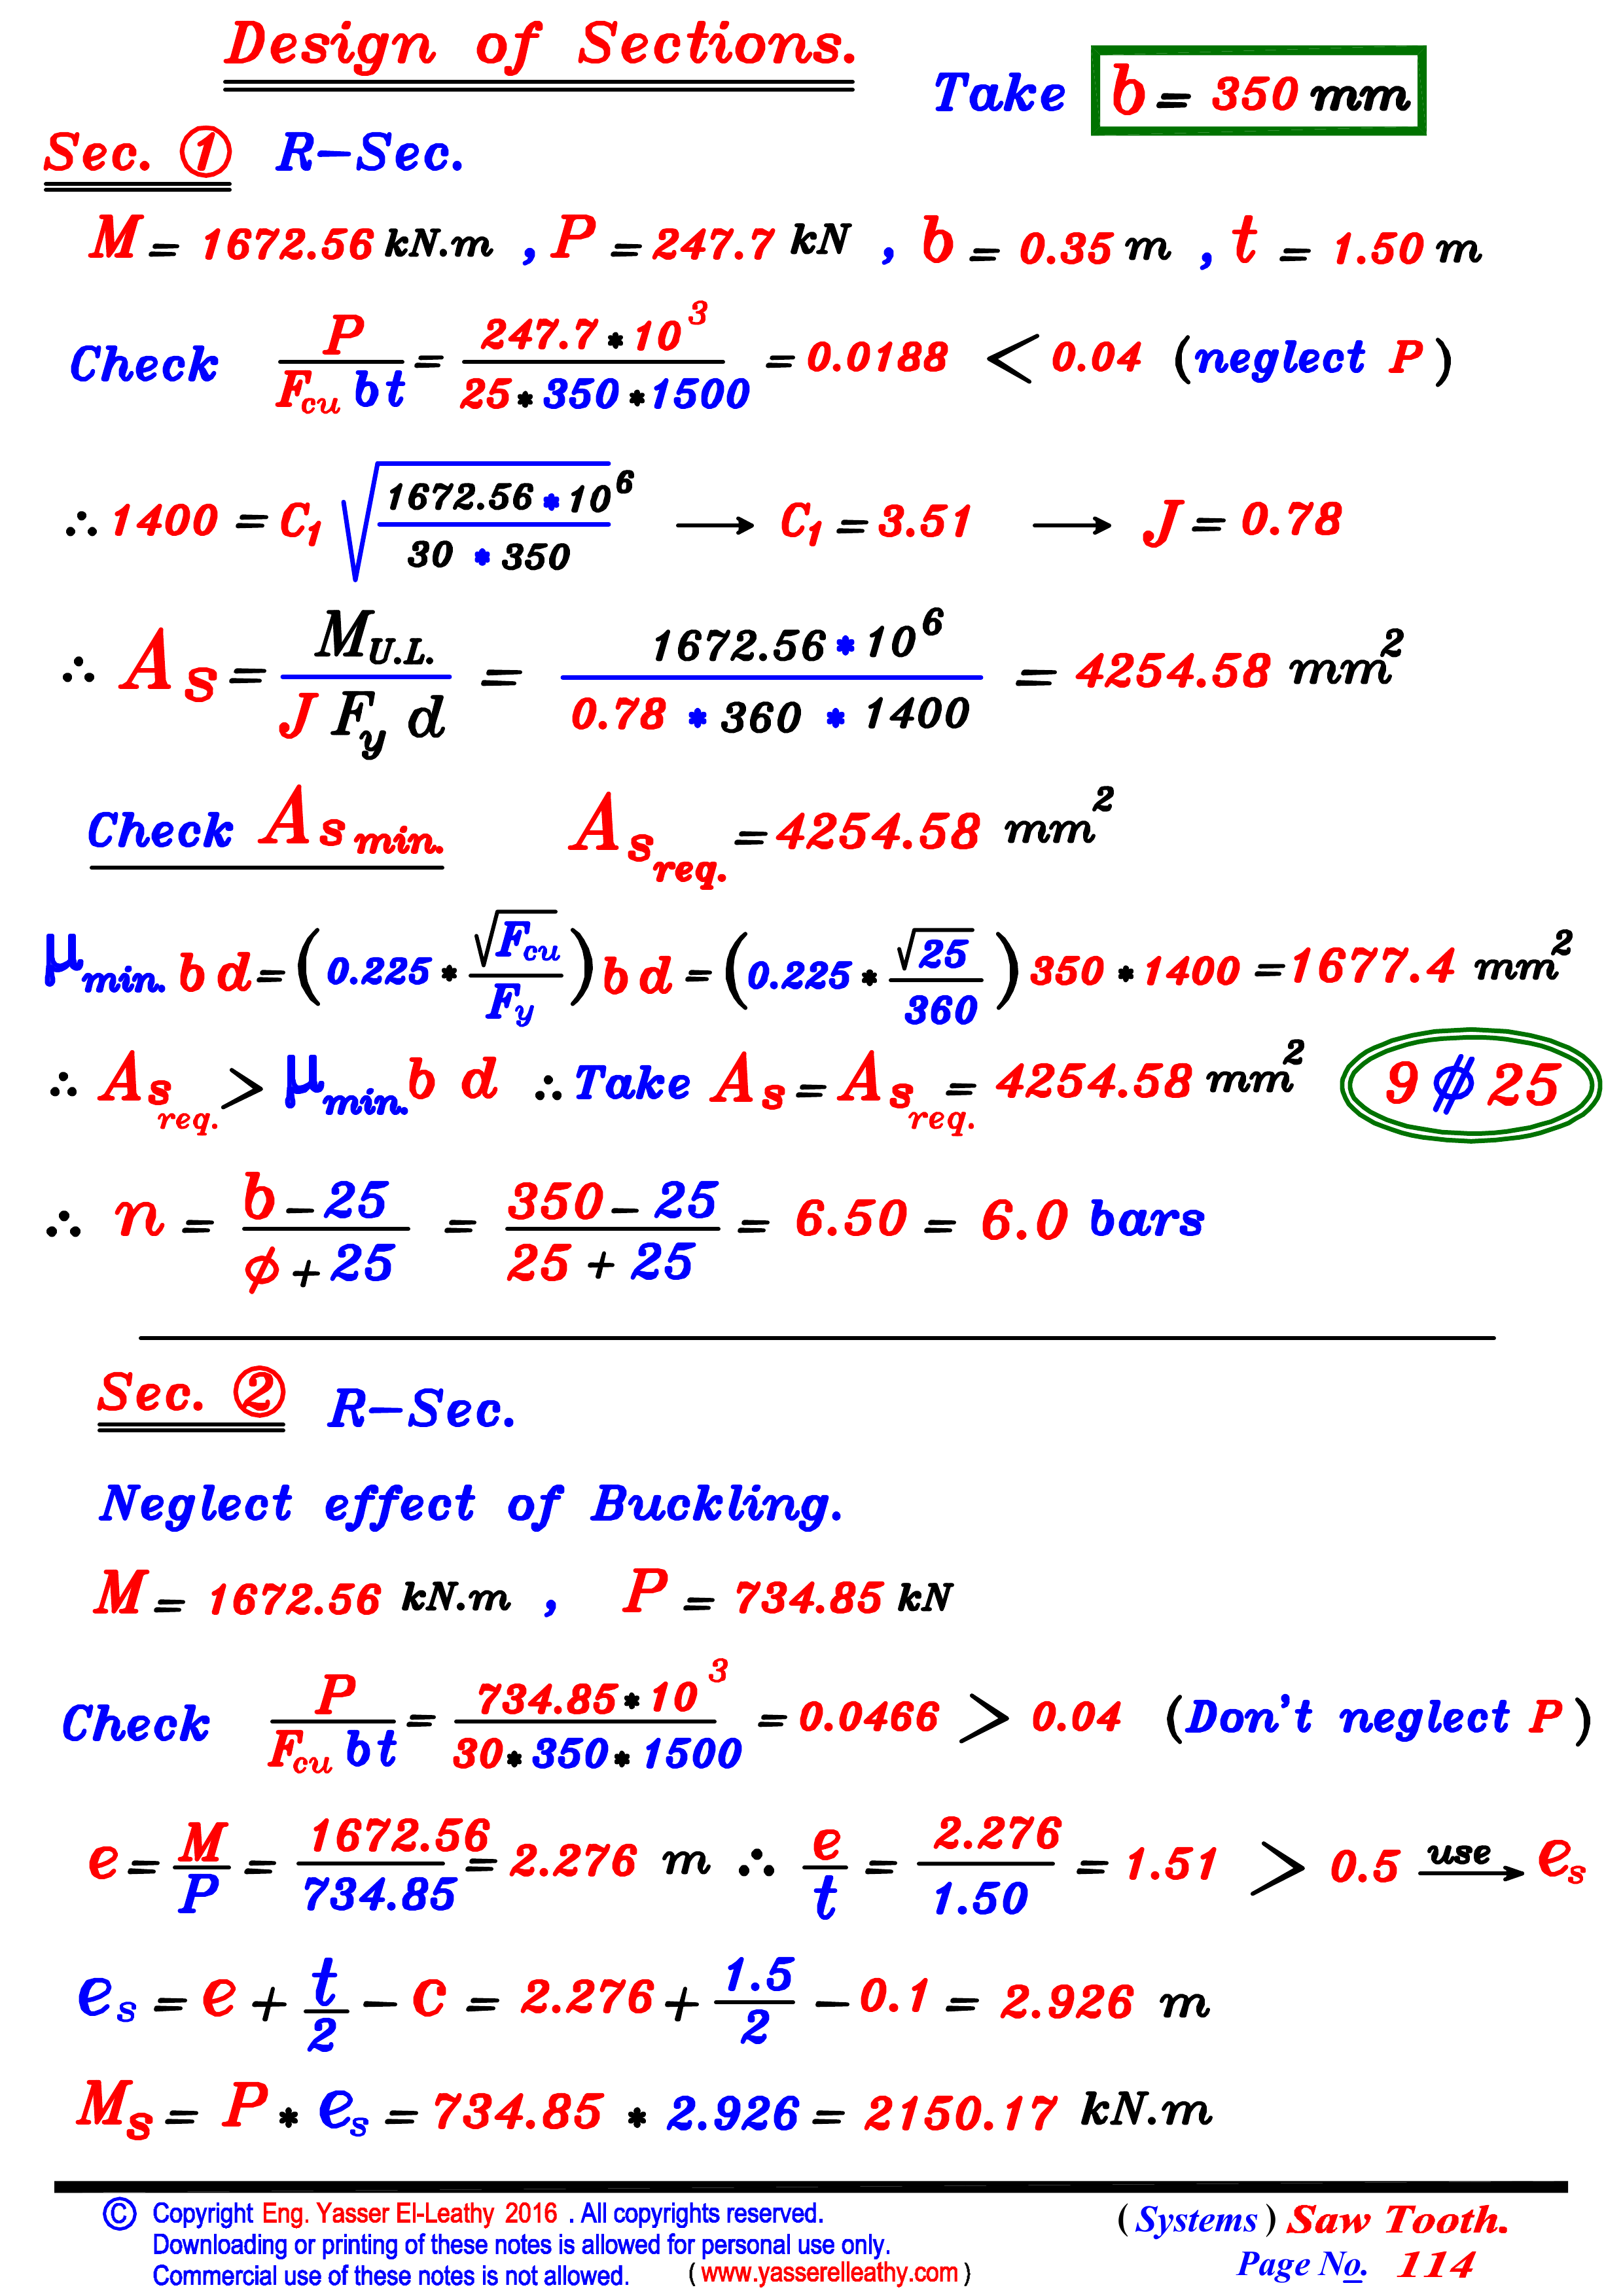 Design of Sections.
Take b = 350 mm
Sec. ① R-Sec.
M = 1672.56 kN.m , P = 247.7 kN , b = 0.35 m , t = 1.50 m
Check P / Fcu bt = 247.7 * 10^3 / 25 * 350 * 1500 = 0.0188 < 0.04 (neglect P)
∴ 1400 = C1 √(1672.56 * 10^6 / 30 * 350) → C1 = 3.51 → J = 0.78
∴ As = MU.L. / J Fy d = 1672.56 * 10^6 / 0.78 * 360 * 1400 = 4254.58 mm^2
Check As min. As req. = 4254.58 mm^2
μmin. b d = (0.225 * √Fcu / Fy) b d = (0.225 * √25 / 360) 350 * 1400 = 1677.4 mm^2
∴ As req. > μmin. b d ∴ Take As = As req. = 4254.58 mm^2 9 ⌀ 25
∴ n = b - 25 / φ + 25 = 350 - 25 / 25 + 25 = 6.50 = 6.0 bars
Sec. ② R-Sec.
Neglect effect of Buckling.
M = 1672.56 kN.m , P = 734.85 kN
Check P / Fcu bt = 734.85 * 10^3 / 30 * 350 * 1500 = 0.0466 > 0.04 (Don't neglect P)
e = M / P = 1672.56 / 734.85 = 2.276 m ∴ e / t = 2.276 / 1.50 = 1.51 > 0.5 use → es
es = e + t / 2 - c = 2.276 + 1.5 / 2 - 0.1 = 2.926 m
Ms = P * es = 734.85 * 2.926 = 2150.17 kN.m
© Copyright Eng. Yasser El-Leathy 2016 . All copyrights reserved.
Downloading or printing of these notes is allowed for personal use only.
Commercial use of these notes is not allowed. ( www.yasserelleathy.com )
(Systems) Saw Tooth.
Page No. 114